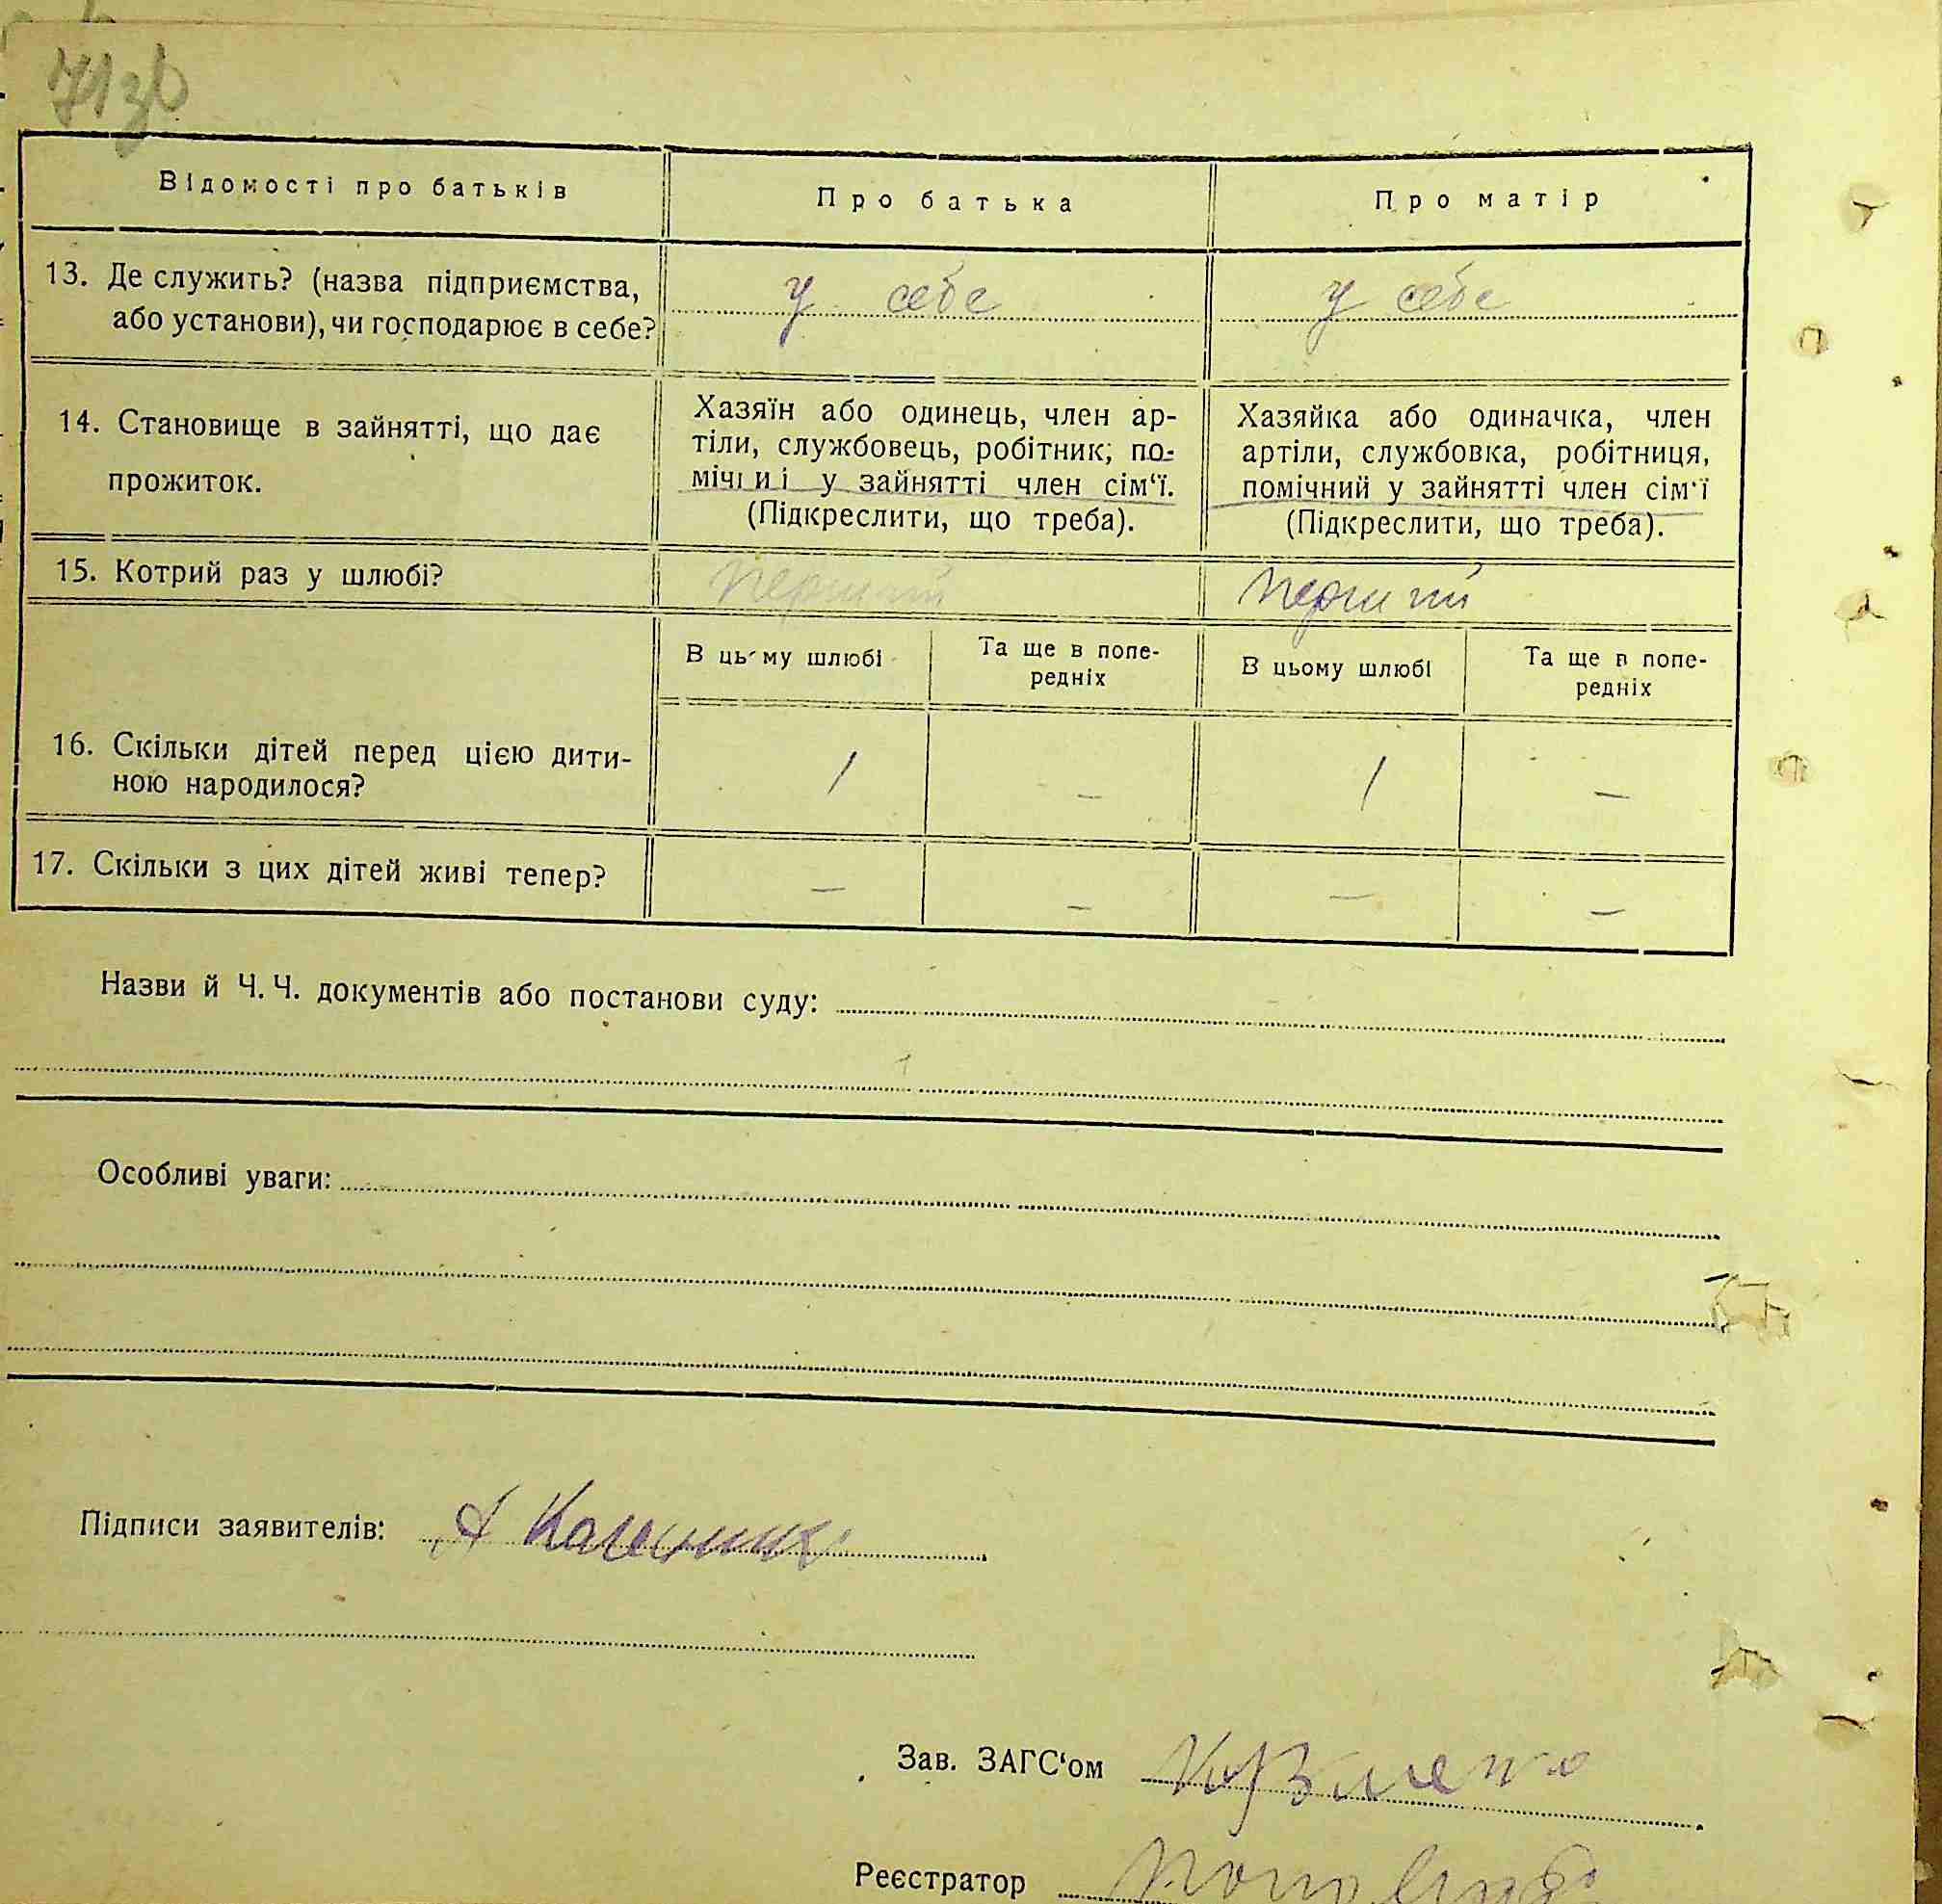 71зв
Відомості про батьків Про батька Про матір
13. Де служить? (назва підприємства, у себе у себе
або установи), чи господарює в себе?
14. Становище в зайнятті, що дає
прожиток.
Хазяїн або одинець, член ар-
тіли, службовець, робітник; по-
мічний у зайнятті член сім‘ї.
(Підкреслити, що треба).
Хазяйка або одиначка, член
артіли, службовка, робітниця,
помічний у зайнятті член сім‘ї
(Підкреслити, що треба).
15. Котрий раз у шлюбі? перший перший
В цьому шлюбі Та ще в попе-
редніх
В цьому шлюбі Та ще в попе-
редніх
16. Скільки дітей перед цією дити-
ною народилося? 1 – 1 –
17. Скільки з цих дітей живі тепер? – – – –
Назви й Ч. Ч. документів або постанови суду:
Особливі уваги:
Підписи заявителів:
Зав. ЗАГС‘ом
Реєстратор